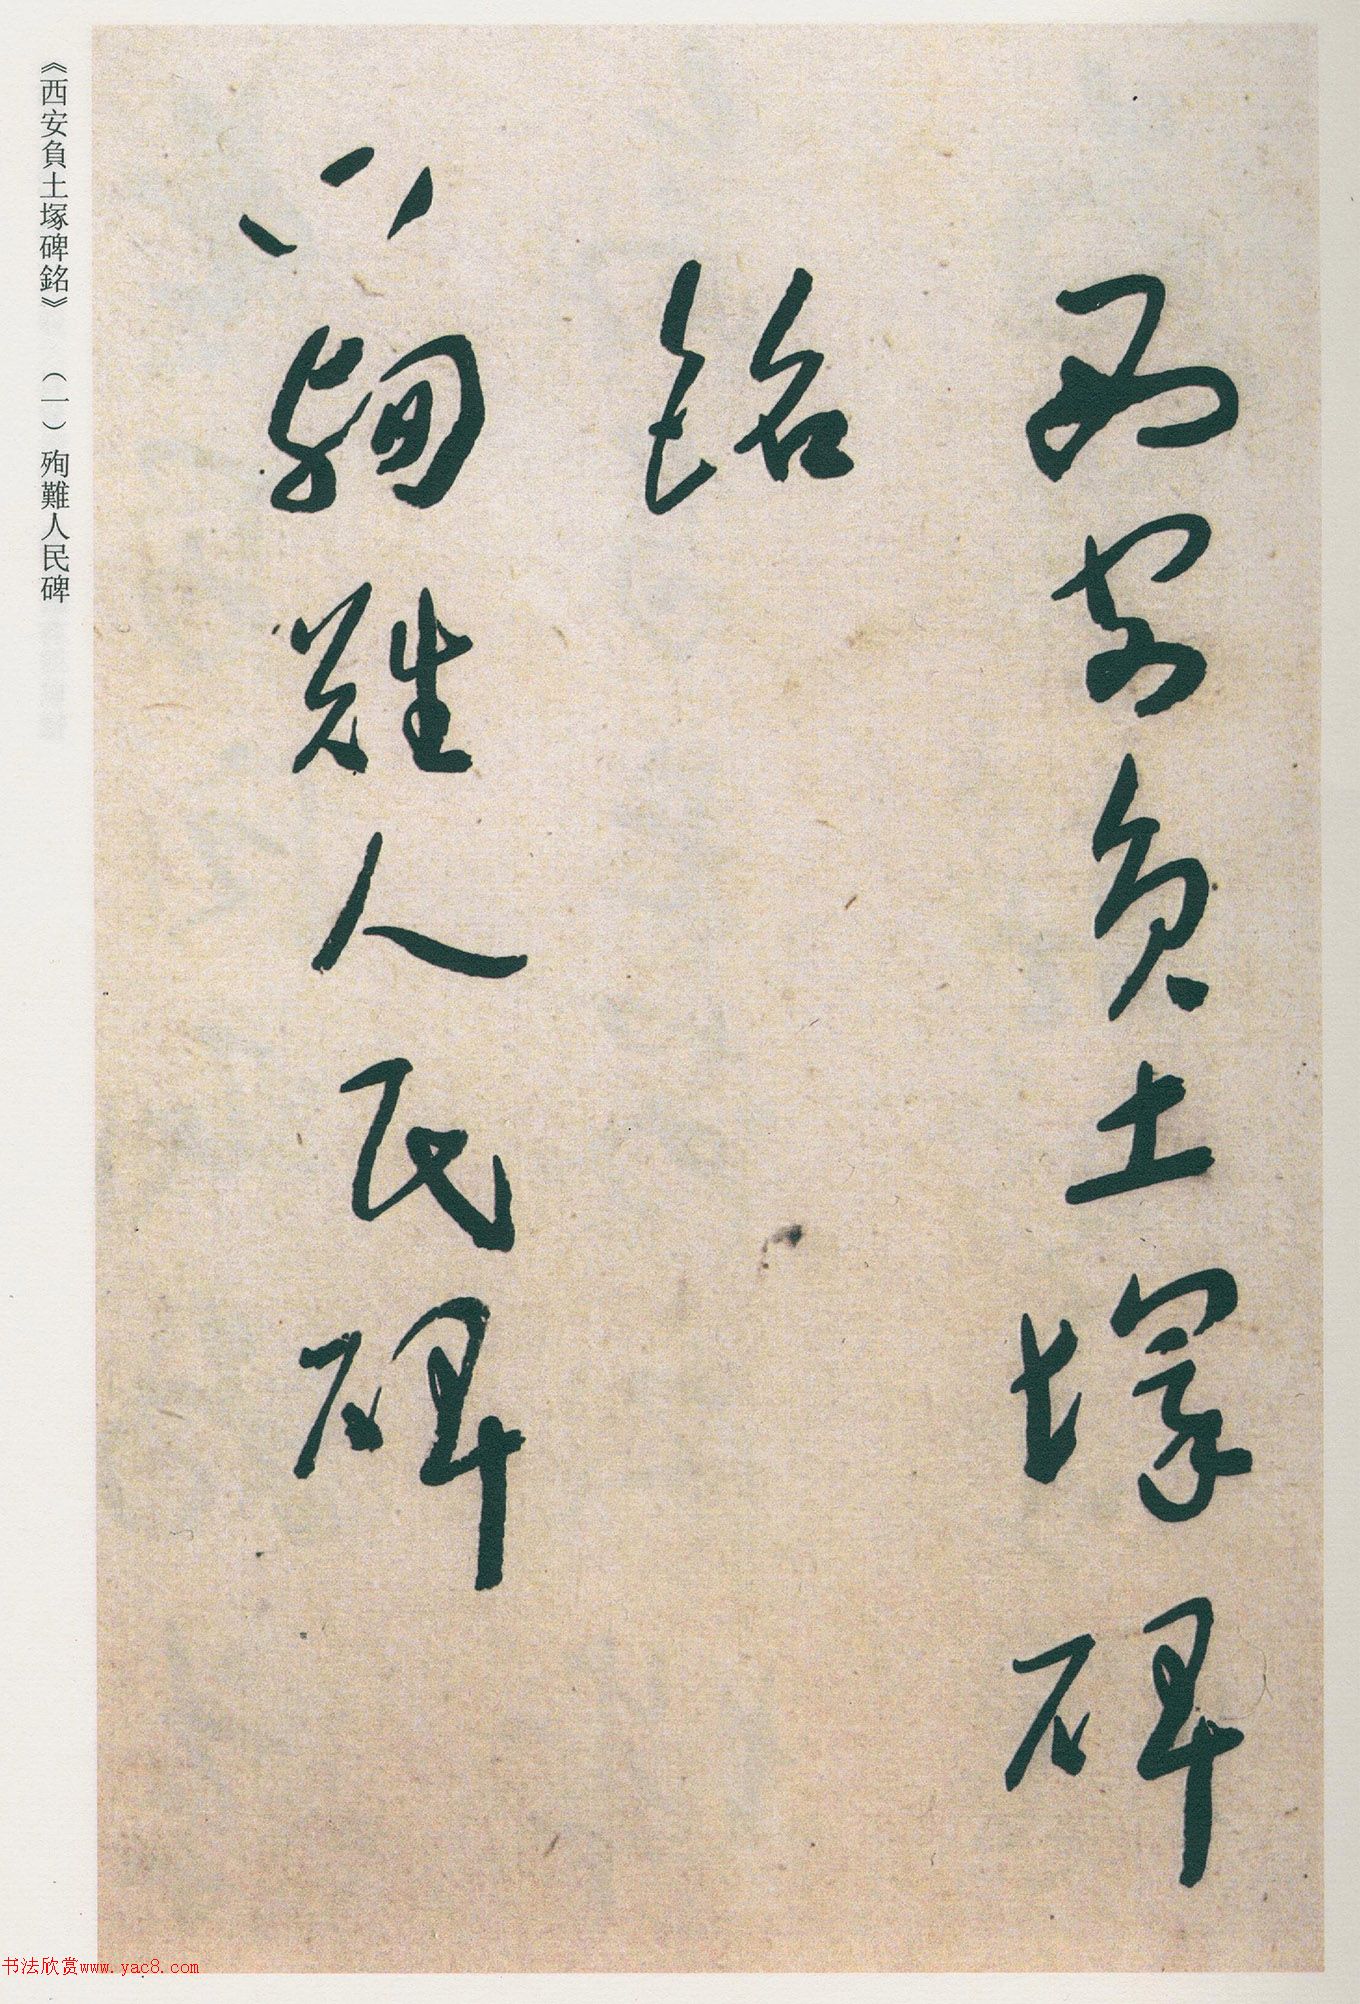 西安負土塚碑
銘
(一)殉難人民碑
《西安負土塚碑銘》 (一)殉難人民碑
书法欣赏www.yac8.com